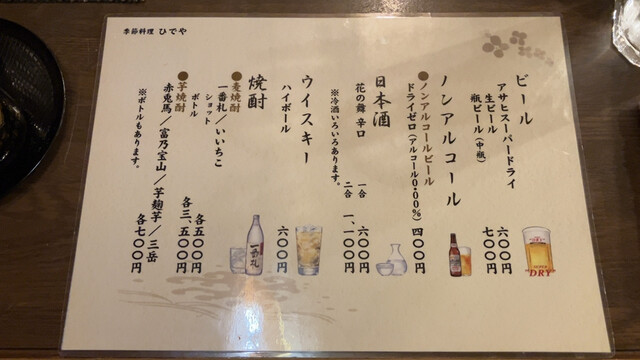 季節料理 ひでや
ビール
アサヒスーパードライ
生ビール 六〇〇円
瓶ビール（中瓶） 七〇〇円
ノンアルコール
●ノンアルコールビール
ドライゼロ（アルコール0.00%） 四〇〇円
日本酒
花の舞 辛口 一合 六〇〇円
二合 一、一〇〇円
※冷酒いろいろあります。
ウイスキー
ハイボール 六〇〇円
焼酎
●麦焼酎
一番札／いいちこ
ショット 各五〇〇円
ボトル 各三、五〇〇円
●芋焼酎
赤兎馬／富乃宝山／芋麹芋／三岳 各七〇〇円
※ボトルもあります。
一番札
DRY